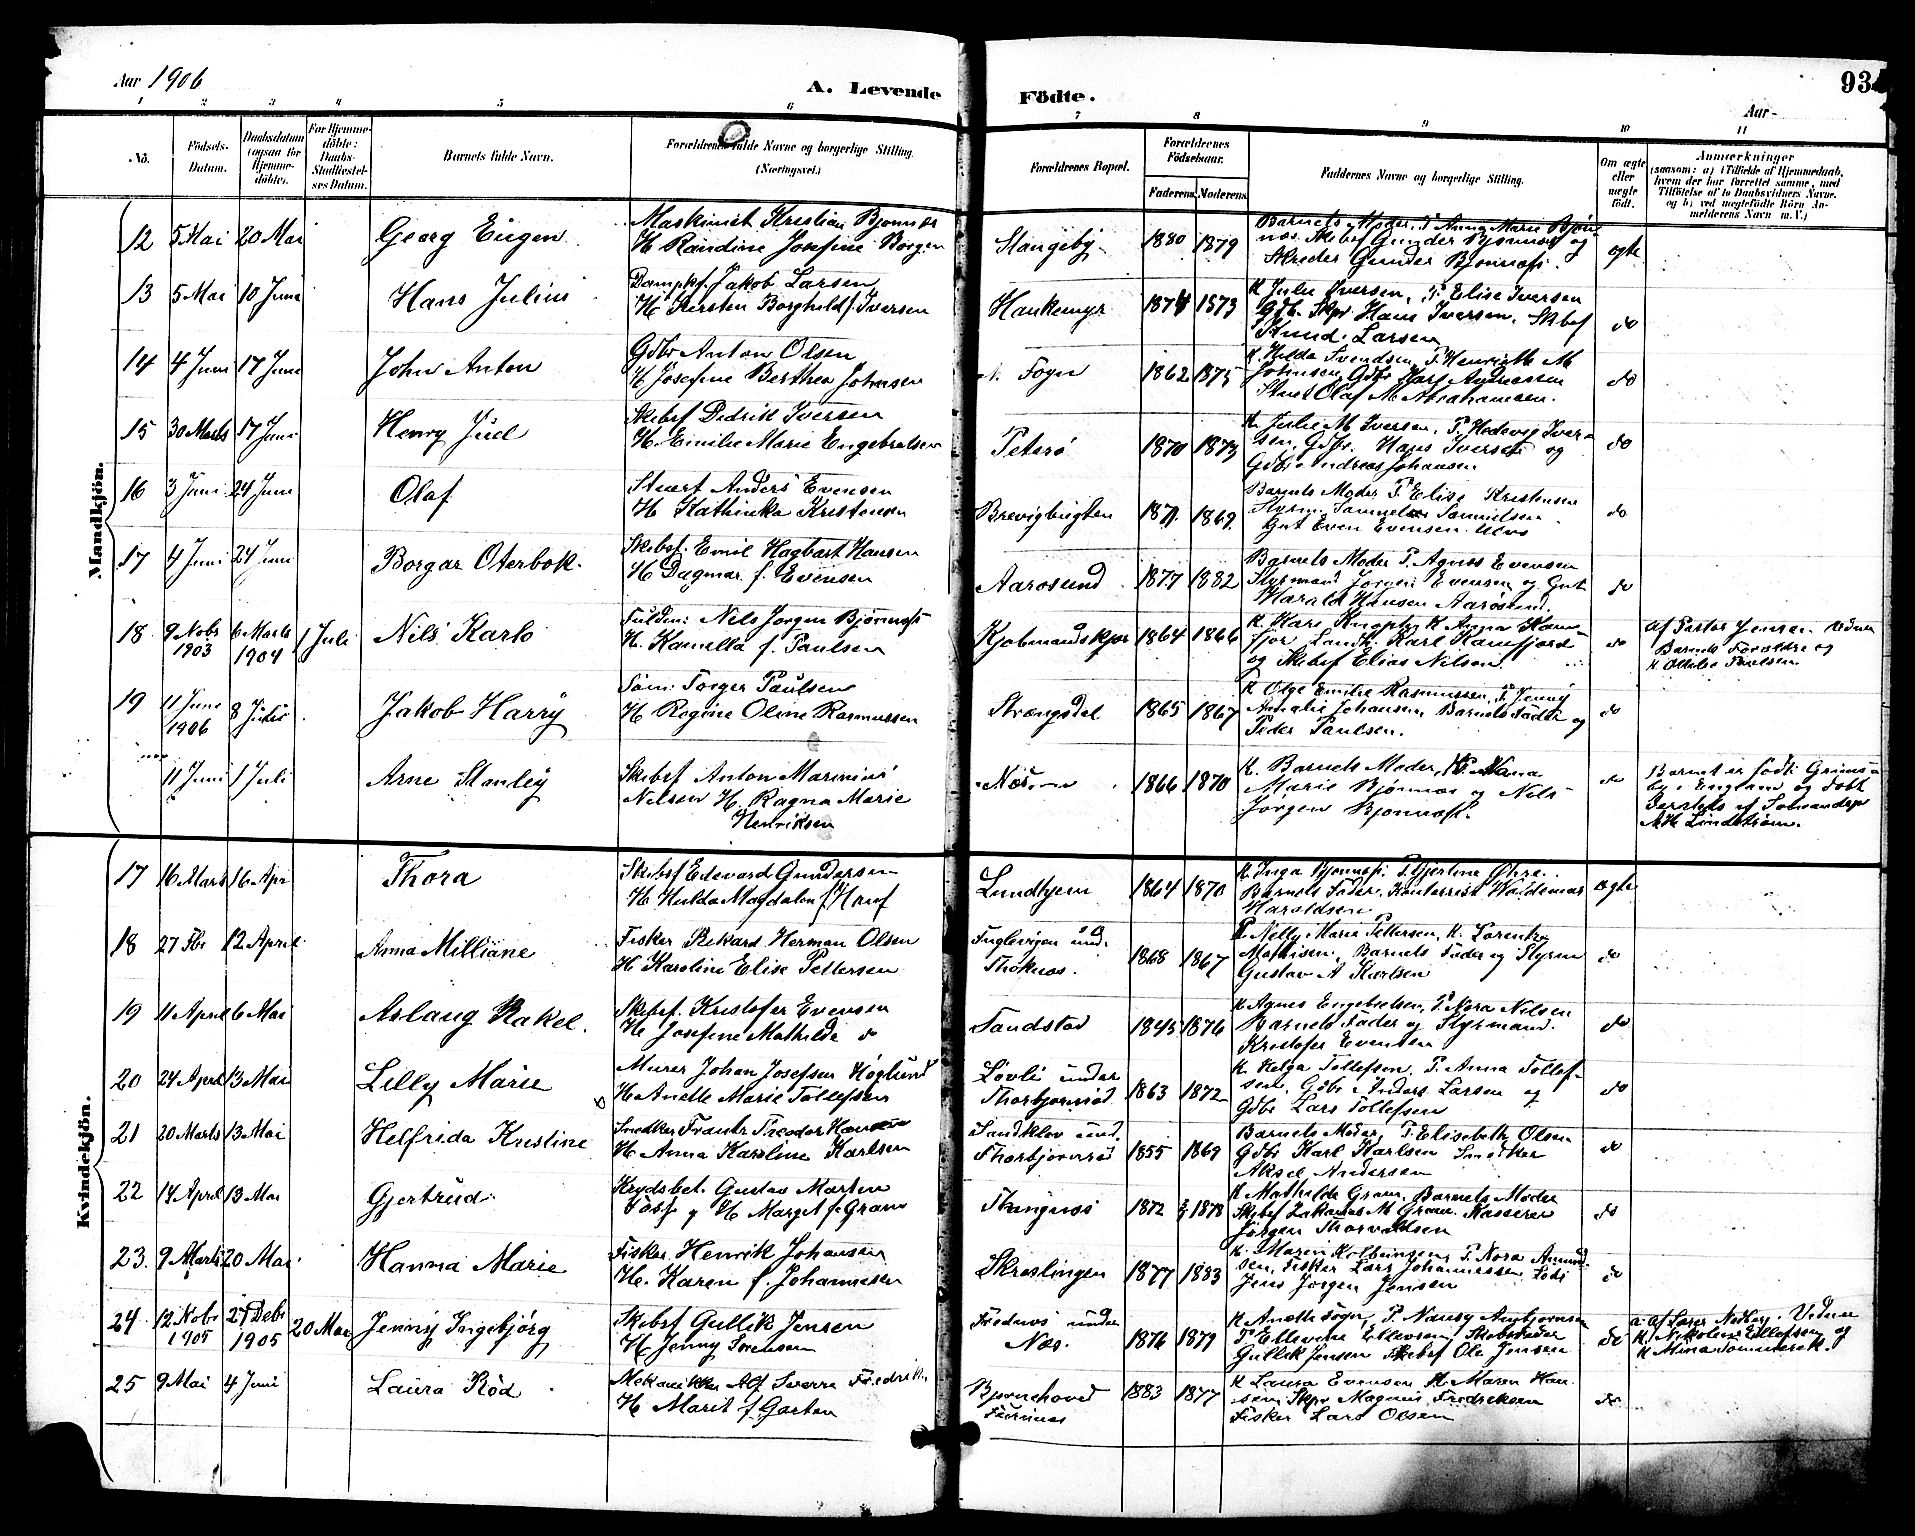 Aar 1906
A. Levende Födte.
93.
Aar
1 2 3 4 5 6 7 8 9 10 11
No.
Födsels-
Datum.
Daabsdatum
(ogsaa for
Hjemme-
döbte).
For Hjemme-
döbte:
Daabs-
Stadfæstel-
ses Datum.
Barnets fulde Navn.
Forældrenes fulde Navne og borgerlige Stilling.
(Næringsvei.)
Forældrenes Bopæl.
Forældrenes
Födselsaar.
Faderens. Moderens.
Faddernes Navne og borgerlige Stilling.
Om ægte
eller
uægte
födt.
Anmærkninger
(saasom: a) i Tilfælde af Hjemmedaab,
hvem der har forrettet samme, med
Tilföielse af to Daabsvidners Navne,
og b) ved uægtefödte Börn An-
melderens Navn m. V.)
Mandkjön.
12 5 Mai 20 Mai Georg Eugen
Maskinist Kristian Bjønnæs
H Randine Josefine Borgen
Slangeby 1880 1879
Barnets Moder, P. Anna Marie Bjøn-
næs. Skibsf Gunder Bjønnæs og
Skræder Gunder Bjønnæs.
ægte
13 5 Mai 10 Juni Hans Julius
Dampkf. Jakob Larsen,
H Kirsten Borghild f. Iversen
Haukemyr 1874 1873
K Julie Iversen, P. Elise Iversen
Gdb. Skpr Hans Iversen, Skbsf
Knud Larsen
do
14 4 Juni 17 Juni John Anton
Gdbr Anton Olsen
H Josefine Berthea Johnsen
N. Fogn 1862 1875
K. Hilda Svendsen, P. Henriette M
Johnsen, Gdbr Karl Andreassen
Stuert Olaf M Abrahamsen.
do
15 30 Marts 17 Juni Henry Juel
Skibsf Didrik Iversen
H. Emilie Marie Engebretsen
Peterø 1870 1873
K. Julie M Iversen, P. Hedevig Iver-
sen, Gdbr. Hans Iversen og
Gdbr Andreas Johansen
do
16 3 Juni 24 Juni Olaf
Stuert Anders Evensen
H Kathinka Kristensen
Brevigbugten 1871. 1869.
Barnets Moder P. Elise Kristensen
Styrm. Samuel Samuelsen
Gut Even Evensen
do
17 4 Juni 24 Juni Borgar Oterbok.
Skibsf. Emil Hagbart Hansen
H Dagmar f. Evensen
Aarøsund 1877 1882
Barnets Moder P. Agnes Evensen
Styrmand Jørgen Evensen og Gut
Harald Hansen Aarøsund.
do
18. 9 Nobr
1903
6 Marts
1904
1 Juli Nils Karlo
Nils Jørgen Bjønnæs
H. Kamilla f. Paulsen
Kjøbmandskjær 1864 1866
K. Kari Knoph, K Anna Kam-
fjor, Landh. Karl Kamfjord
og Skibsf Elias Nilsen.
do
Af Pastor Jensen Vidner
Barnets Forældre og
K Othilie Paulsen.
19 11 Juni
1906
8 Juli Jakob Harry
Tøm. Torger Paulsen
H Regine Oline Rasmussen
Strængsdal 1865 1867
K Olga Emilie Rasmussen, P. Jenny
Amalie Johansen, Barnets Fader og
Peder Paulsen.
do
11 Juni 1 Juli Arne Stanley
Skibsf Anton Marinius
Nilsen H. Ragna Marie
Henriksen
Næs 1866 1870
K. Barnets Moder, P. Nana
Marie Bjønnæs og Nils
Jørgen Bjønnæs.
do
Barnet er født i Grims-
by i England og døbt
af Sømandspr
A. H. Lindstrøm.
Kvindekjön.
17 16 Marts 16 Apr Thora
Skibsf Edevard Gundersen
H Hulda Magdalen f Hauf
Lundhjem 1864 1870
K Inga Bjønnæs, P. Gjertine Øhre.
Barnets Fader, Kontorrist Waldemar
Haraldsen
ægte
18 27 Fbr 12 April Anna Milliane
Fisker Rikard Herman Olsen
H Karoline Elise Pettersen
Fuglevigen und.
Thoknæs. 1868 1867
P. Nelly Marie Pettersen, K. Lorentze
Mathisen, Barnets Fader og Styrm
Gustav A Karlsen
do
19 11 April 6 Mai Aslaug Rakel.
Skibsf. Kristofer Evensen
H Josefine Mathilde do
Sandstad 1845 1876
K Agnes Engebretsen, P. Nora Nilsen
Barnets Fader og Styrmand.
Kristofer Evensen
do
20 24 April 13 Mai Lilly Marie
Murer Johan Josefsen Høglund
H Anette Marie Tollefsen
Løvli under
Thorbjørnrød 1863 1872
K. Helga Tollefsen, P. Anna Tollef-
sen, Gdbr Anders Larsen og
Gdbr Lars Tollefsen
do
21 20 Marts 13 Mai Helfrida Kristine
Snedker Frantz Theodor Hansen
H Anna Karoline Karlsen
Sandkløv und.
Thorbjørnrød 1855 1869
Barnets Moder, P. Elisabeth Olsen
Gdbr Karl Karlsen Snedker
Aksel Andersen
do
22 14 April 13 Mai Gjertrud
Krydsbet. Gustav Morten
H Margit f. Gran
1872 1878
K Mathilde Gran, Barnets Moder
Skibsf Zakarias M Gran, Kasserer
Jørgen Thorvaldsen
do
23. 9 Marts 20 Mai Hanna Marie
Fisker Henrik Johansen
H. Karen f. Johannesen
Skræslingen 1877 1883
K. Maren Kolbeinsen, P. Nora Amund-
sen, Fisker Lars Johannessen
Jens Jørgen Jensen
do
24 12 Nobr
1905
27 Debr
1905
20 Mai Jenny Ingebjørg
Skibsf Gullik Jensen
H Jenny Sørensen
under
Næs. 1876 1879
K Anette Fogn, P. Nancy Ansbjørnsen
P. Ellevine Ellevsen, Skibsreder
Gullik Jensen Skibsf Ole Jensen
do
a. Af Lærer Vidner
K. Nikoline Ellefsen og
K Mina
25 9 Mai 4 Juni Laura Rød
Mekanikker Alf Sverre Fredrik
H. Marit f. Garten
Bjørnehoved
1883 1877
K Laura Evensen K Maren Han-
sen, Skpr Magnus Fredriksen
Fisker Lars Olsen
do